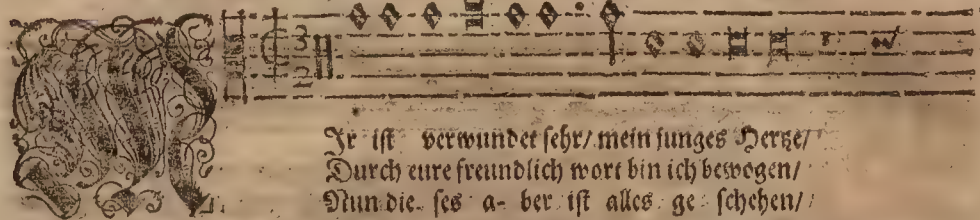 MIr ist verwundet sehr/ mein junges Hertze/
Durch eure freundlich wort bin ich bewogen/
Nun die- ses a- ber ist alles ge- schehen/